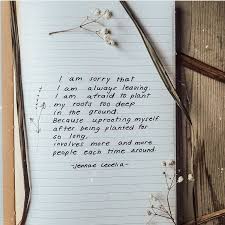 I am sorry that
I am always leaving.
I am afraid to plant
my roots too deep
in the ground.
Because uprooting myself
after being planted for
so long,
involves more and more
people each time around.
-jennae cecelia-